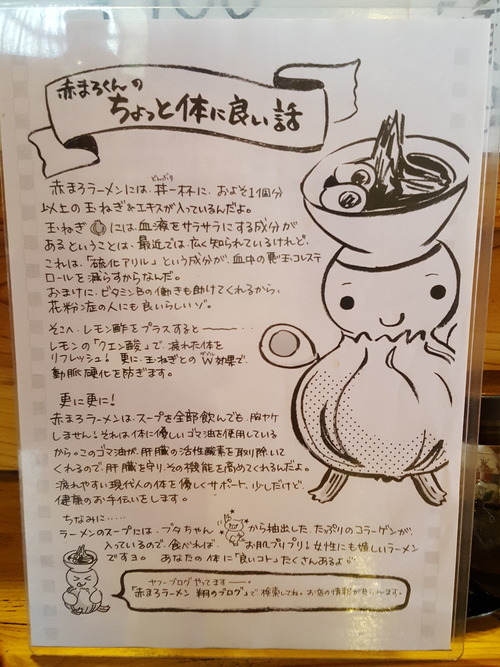 赤まろくんの
ちょっと体に良い話
赤まろラーメンには、丼一杯に、およそ1個分
以上の玉ねぎ&エキスが入っているんだよ。
玉ねぎには、血液をサラサラにする成分が
あるということは、最近では広く知られているけれど、
これは、「硫化アリル」という成分が、血中の悪玉コレステ
ロールを減らすからなんだ。
おまけに、ビタミンBの働きも助けてくれるから、
花粉症の人にも良いらしいゾ。
そこへ、レモン酢をプラスすると
レモンの「クエン酸」で、疲れた体を
リフレッシュ!更に、玉ねぎとのW効果で、
動脈硬化を防ぎます。
更に更に!
赤まろラーメンは、スープを全部飲んでも、胸ヤケ
しません!それは体に優しいゴマ油を使用している
から。このゴマ油が、肝臓の活性酸素を取り除いて
くれるので、肝臓を守り、その機能を高めてくれるんだよ。
疲れやすい現代人の体を優しくサポート。少しだけど、
健康のお手伝いをします。
ちなみに・・・・・
ラーメンのスープには、ブタちゃんから抽出した、たっぷりのコラーゲンが
入っているので、食べれば、お肌プリプリ!女性にも嬉しいラーメン
ですヨ。 あなたの体に「良いコト」たくさんあるよ
ヤフーブログやってます
「赤まろラーメン 翔のブログ」で検索してね。お店の情報が見られます。